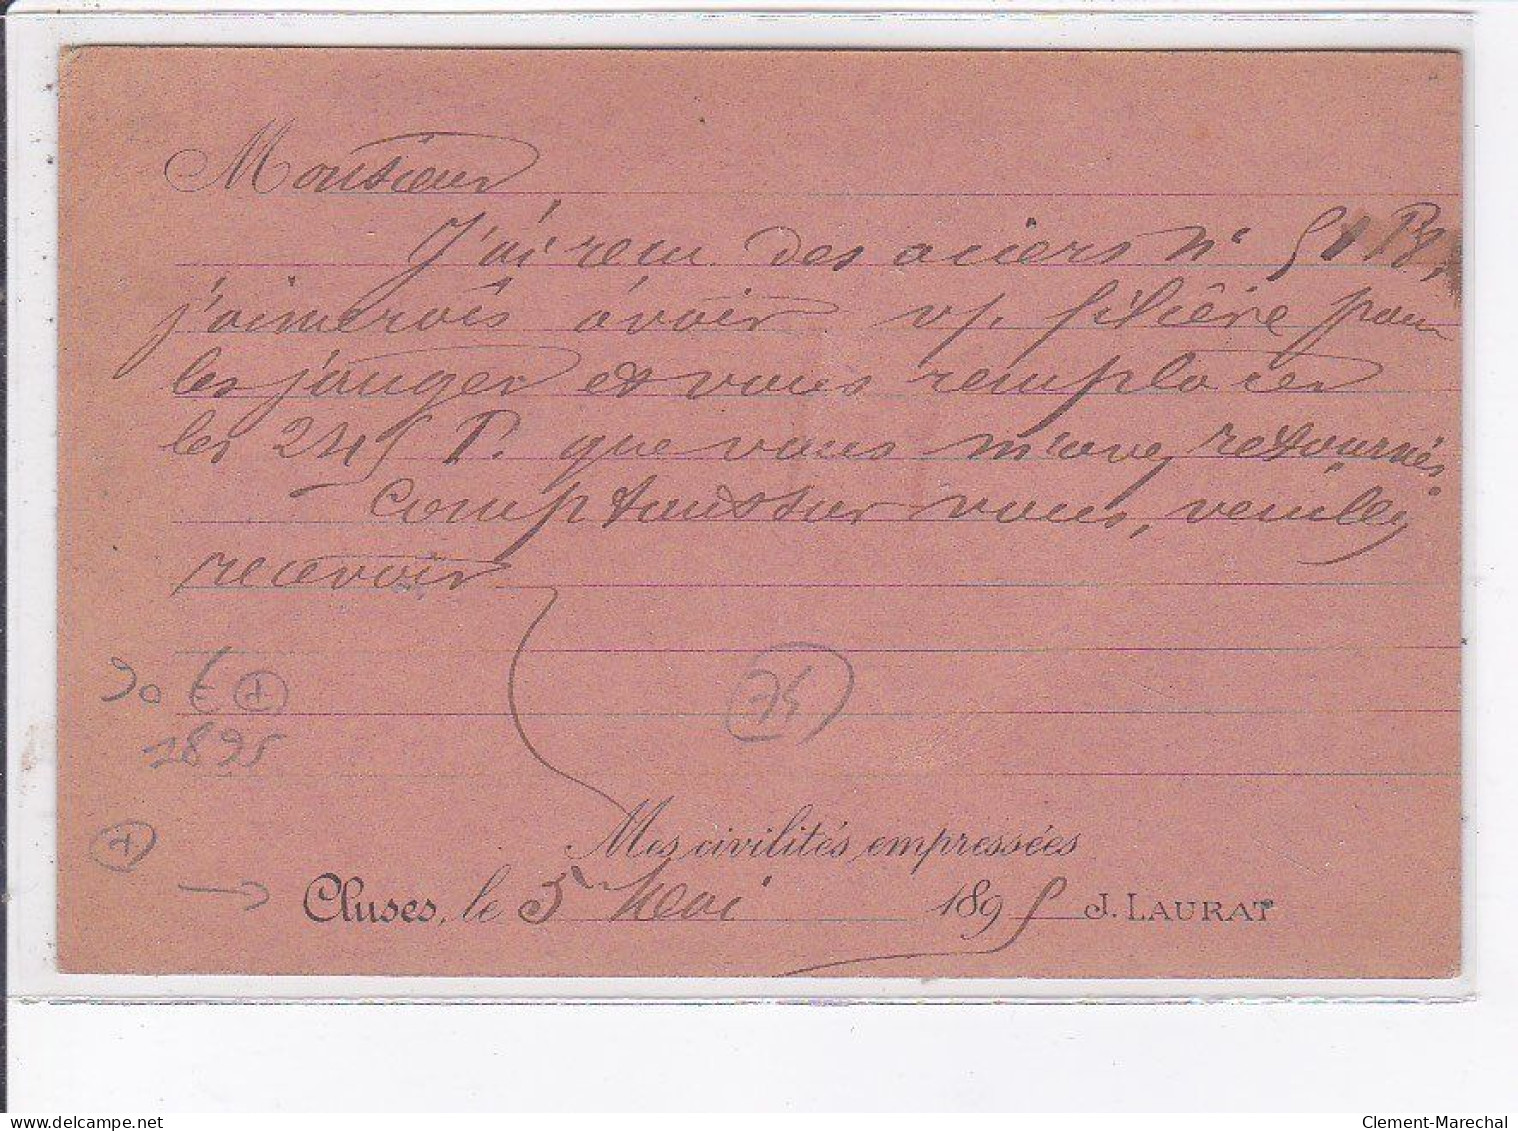 Monsieur
J'ai recu des aciers n° 51 P.
j'aimerais avoir v/. filière pour
les jauger et vous remplacer
les 245 P. que vous m'avez retournés
Comptant sur vous, veuillez
recevoir
30 € +
1895
74
Mes civilités empressées
+
Cluses, le 5 Mai 1895 J. LAURAT
delcampe.net
Clement-Marechal